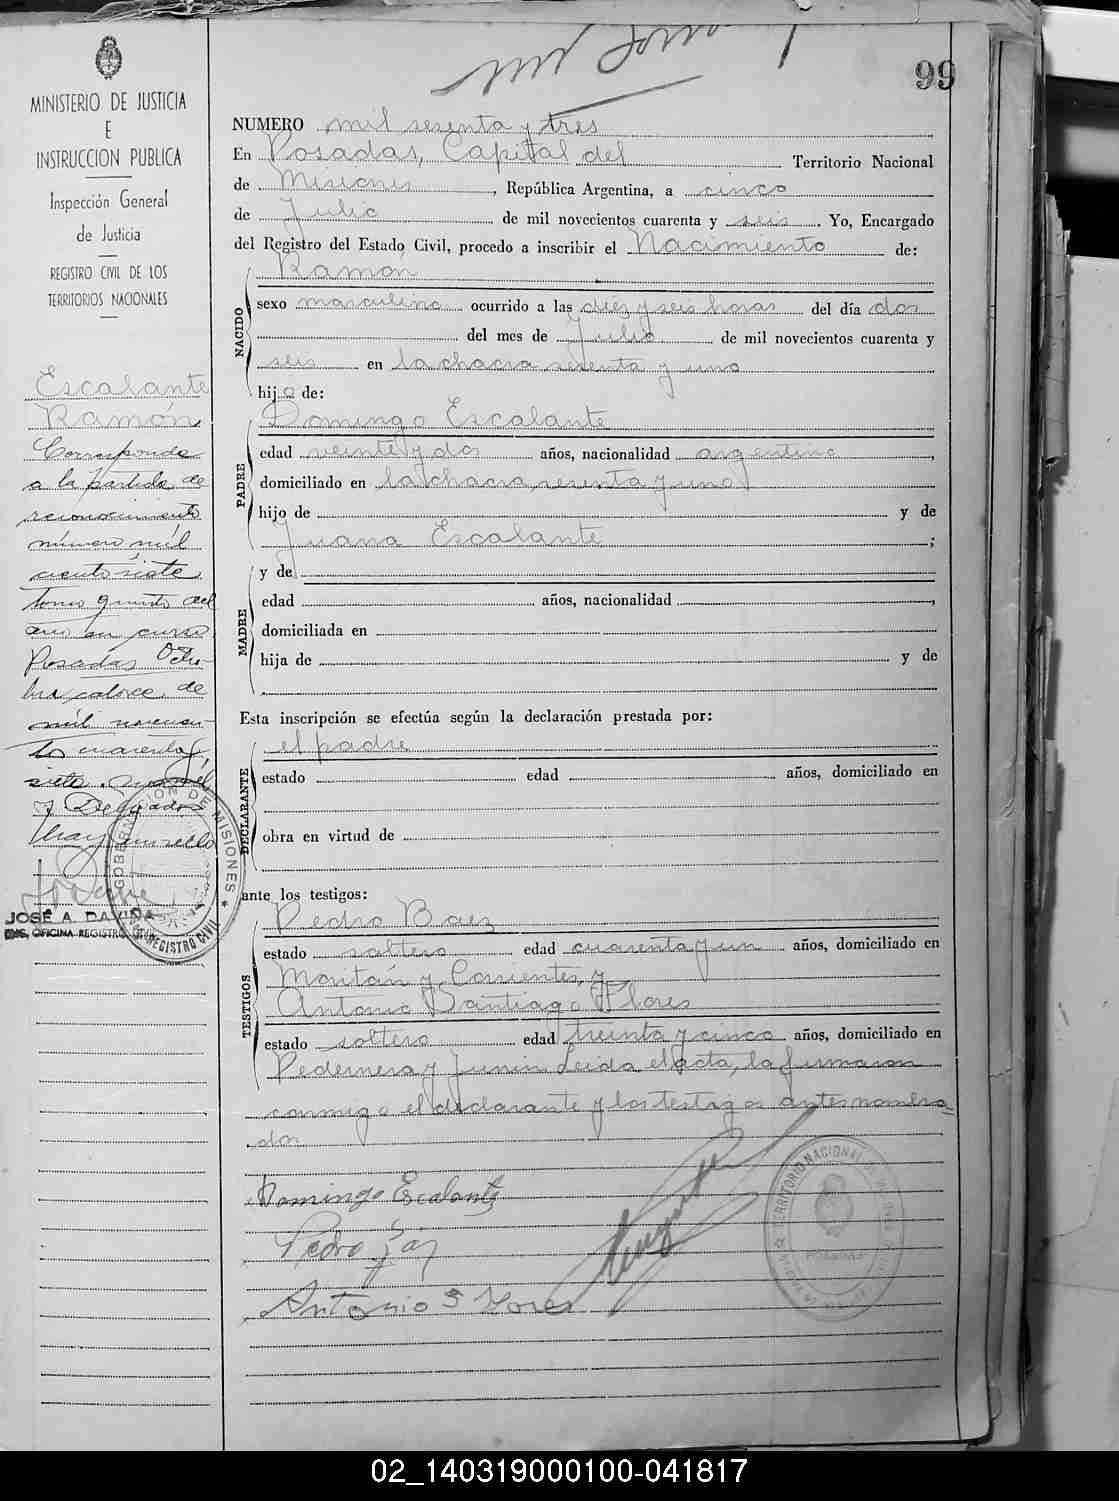 99
MINISTERIO DE JUSTICIA
E
INSTRUCCION PUBLICA
Inspección General
de Justicia
REGISTRO CIVIL DE LOS
TERRITORIOS NACIONALES
Escalante
Ramón
Corresponde
a la partida de
reconocimiento
número mil
ciento siete
tomo quinto del
año en curso
Posadas Octu-
bre catorce de
mil novecien-
to cuarenta y
siete.
GOBERNACION DE MISIONES
REGISTRO CIVIL
JOSÉ A. DAVIÑA
OFICINA REGISTRO CIVIL
NUMERO mil sesenta y tres
En Posadas, Capital del Territorio Nacional
de Misiones, República Argentina, a cinco
de Julio de mil novecientos cuarenta y seis. Yo, Encargado
del Registro del Estado Civil, procedo a inscribir el Nacimiento de:
NACIDO
Ramón
sexo masculino ocurrido a las diez y seis horas del día dos
del mes de Julio de mil novecientos cuarenta y
seis en la chacra sesenta y uno
hijo de:
PADRE
Domingo Escalante
edad veinte y dos años, nacionalidad argentino,
domiciliado en la chacra sesenta y uno
hijo de y de
Juana Escalante;
y de
MADRE
edad años, nacionalidad,
domiciliada en
hija de y de
Esta inscripción se efectúa según la declaración prestada por:
DECLARANTE
el padre
estado edad años, domiciliado en
obra en virtud de
ante los testigos:
TESTIGOS
Pedro Baez
estado soltero edad cuarenta y un años, domiciliado en
Moritán y Corrientes, y
Antonio Santiago Flores
estado soltero edad treinta y cinco años, domiciliado en
Pedernera y Junin. Leida el acta, la firmaron
conmigo el declarante y los testigos antes nombra-
dos
Domingo Escalante
Pedro
Antonio S Flores
TERRITORIO NACIONAL
POSADAS
02_140319000100-041817